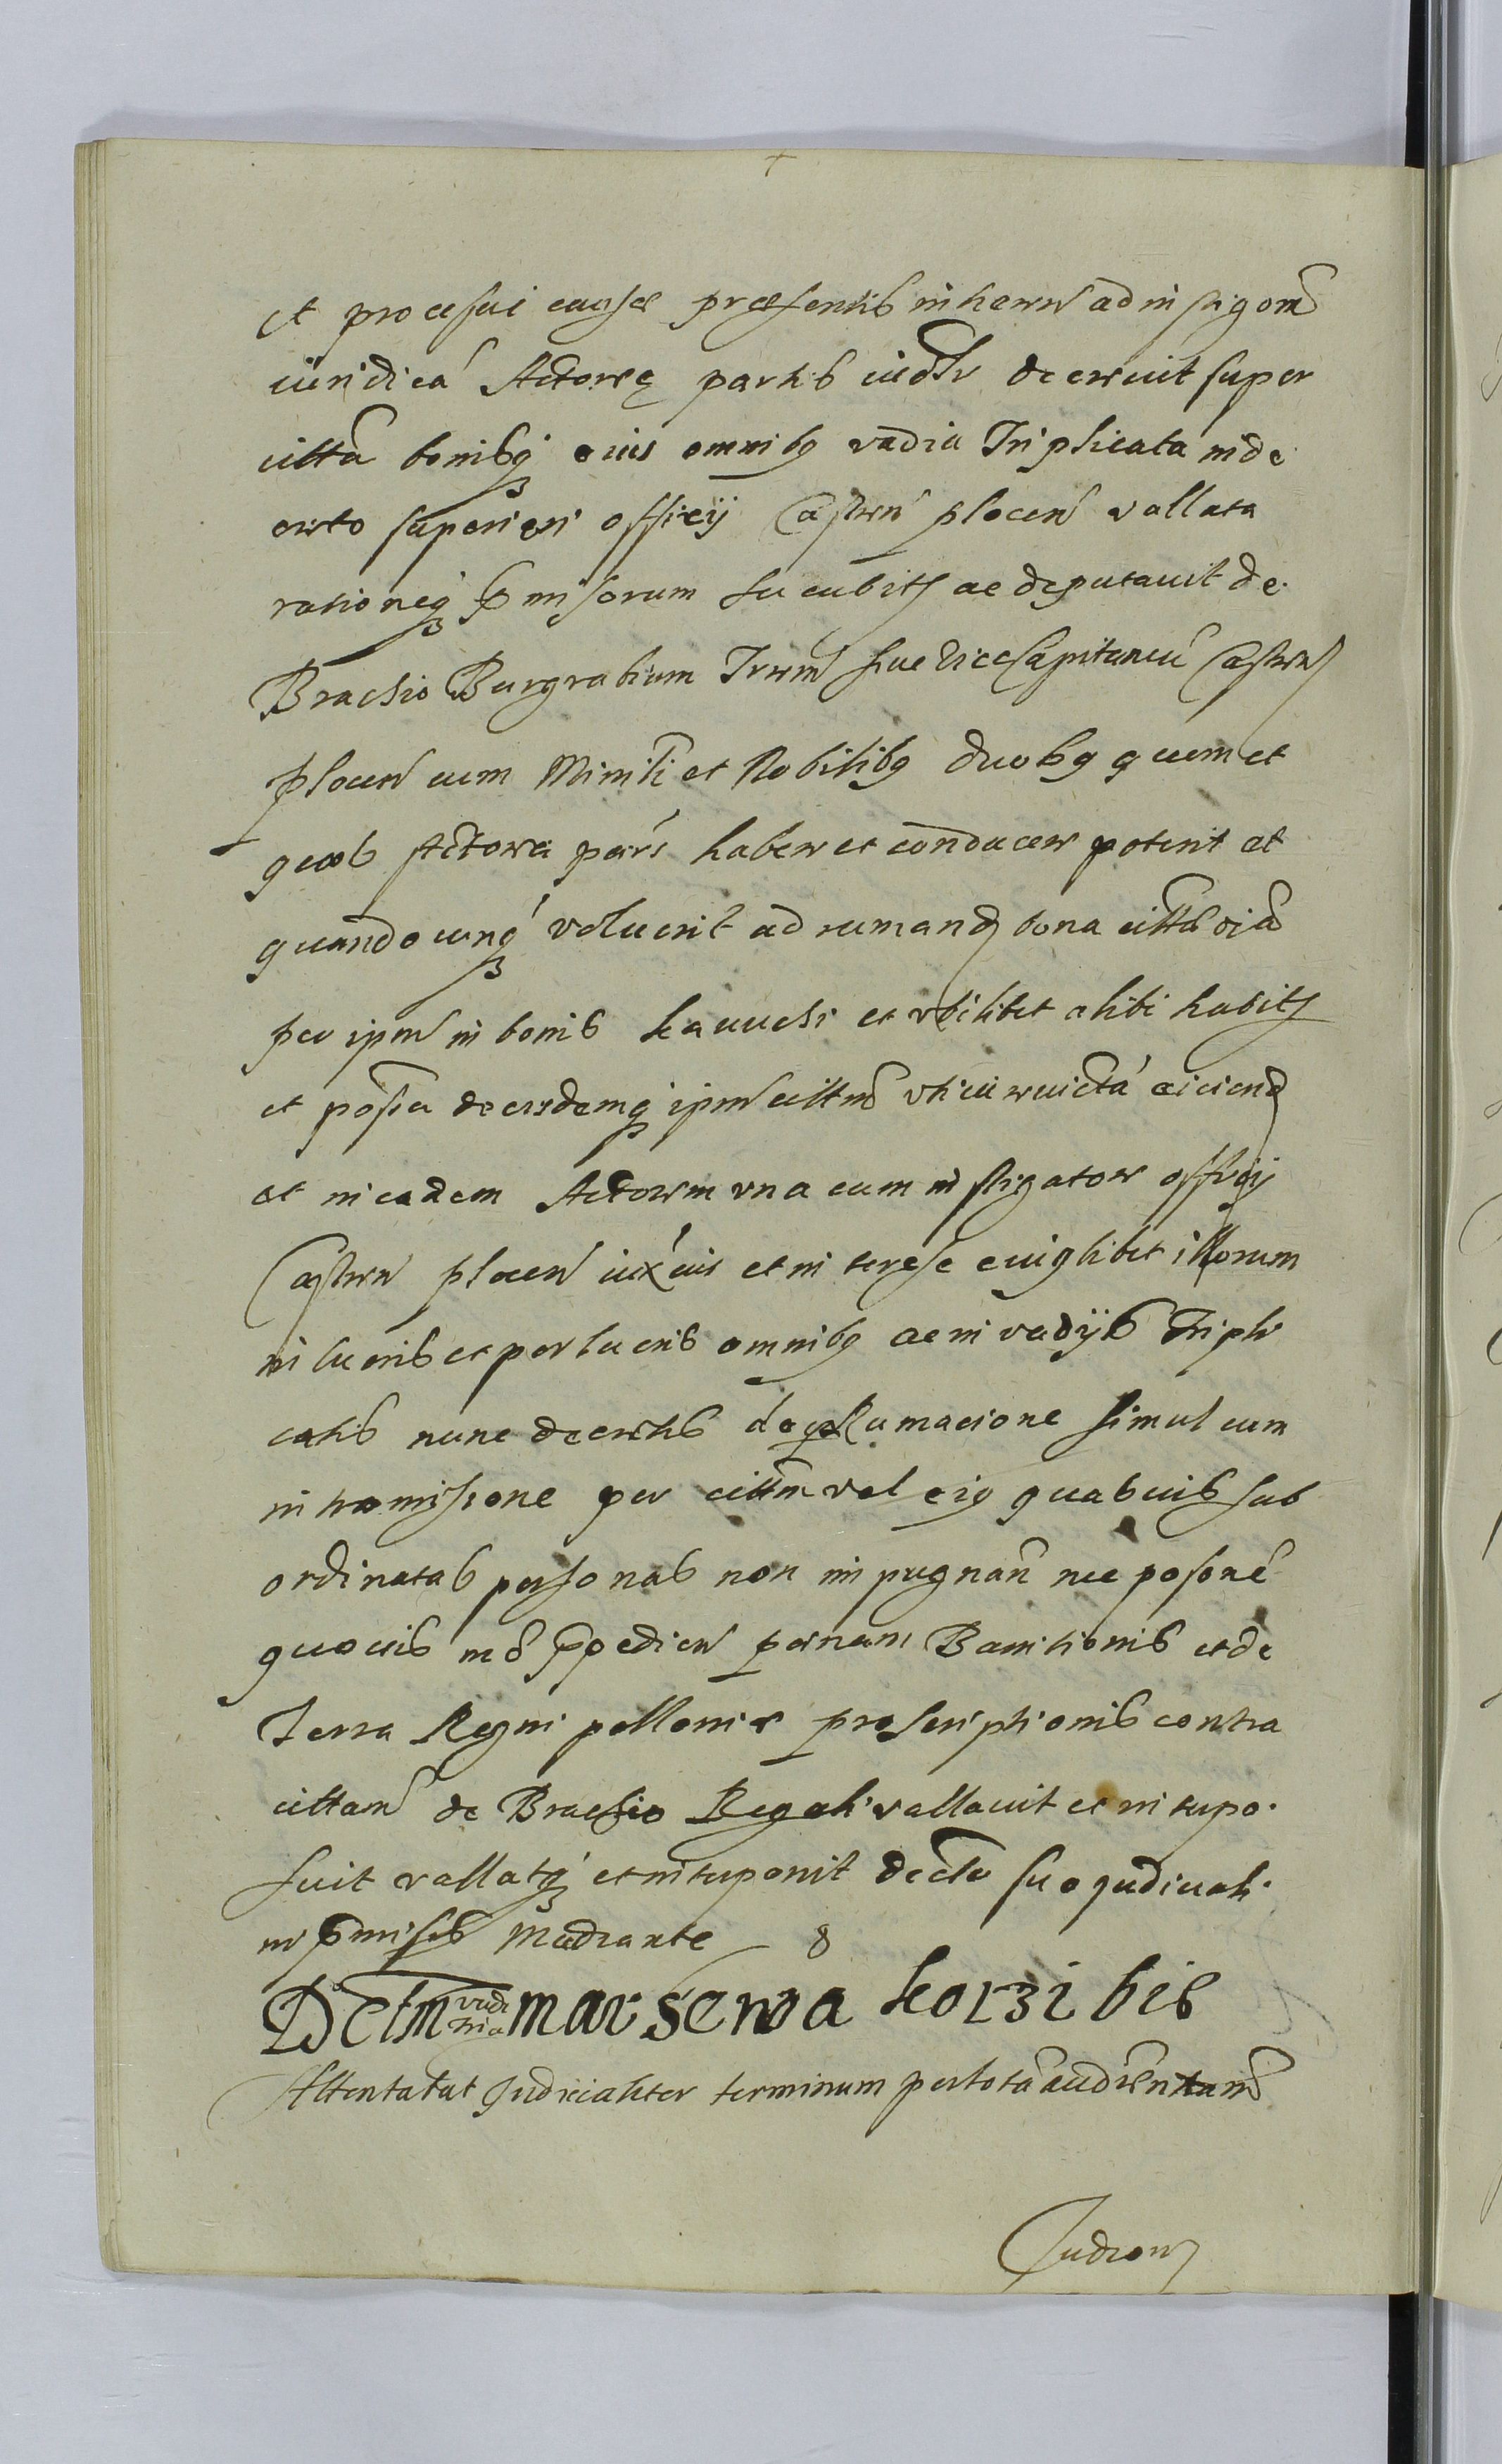 et processui causæ præsentis inheren ad instigom̃
iuridicá Actoreę partis iudlr decrevit super
cittã bonisq̃ eius omnibq vadia Triplicata in de
creto superiori officij Castren plocen vallata
rationeq̃ p̃missorum succubits ac deputavit de
Brachio Burgrabium Terrm̃ siue Vice Capitaneũ Castren
plocen cum Ministl̃i et Nobilibq duobq quem et
quos Actorea pars habere et conducere poterit et
quandocunq̃ voluerit ad rumand bona cittã oĩa
per ipm̃ in bonis et vbilibet alibi habits
et postea de eisdemq ipm̃ cittm̃ vti iurevictá eiiciend
et in eadem Actorem vna cum instigatore officij
Castren plocen iux́ ius et interesse cuiqlibet illorum
in lucris et perlucris omnibq ac in vadijs Tripli
catis nunc decretis de Rumacione simul cum
intromissione per cittm̃ vel eiq quasuis sub
ordinatas personas non impugnan̄ nec possone
quouis md̃ ỹpedien pœnam Bannitionis et de
Terra Regni pollonię proscriptionis contra
cittam̃ de Brachio Regali vallauit et interpo
suit vallatq̃ et interponit decto suo judiciali
in p̃missis Mediante 8
Attentatat Judicialiter terminum per totã audien tiam̃